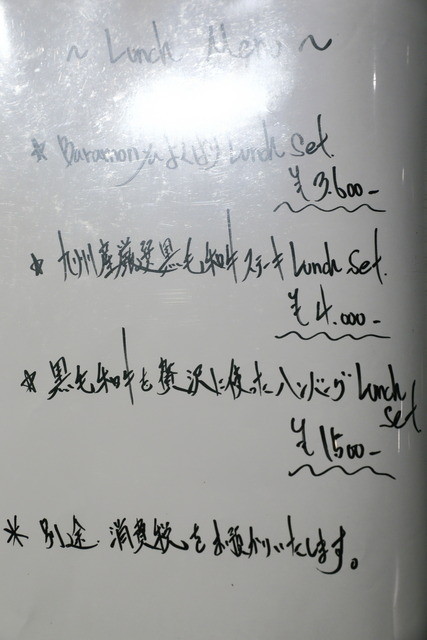 ~ Lunch Menu ~
★ Baramon Lunch Set.
¥3.600-
★ 九州産厳選黒毛和牛ステーキ Lunch Set.
¥4.000-
★ 黒毛和牛を贅沢に使ったハンバーグ Lunch
Set
¥1500-
※ 別途 消費税をお預かりいたします。